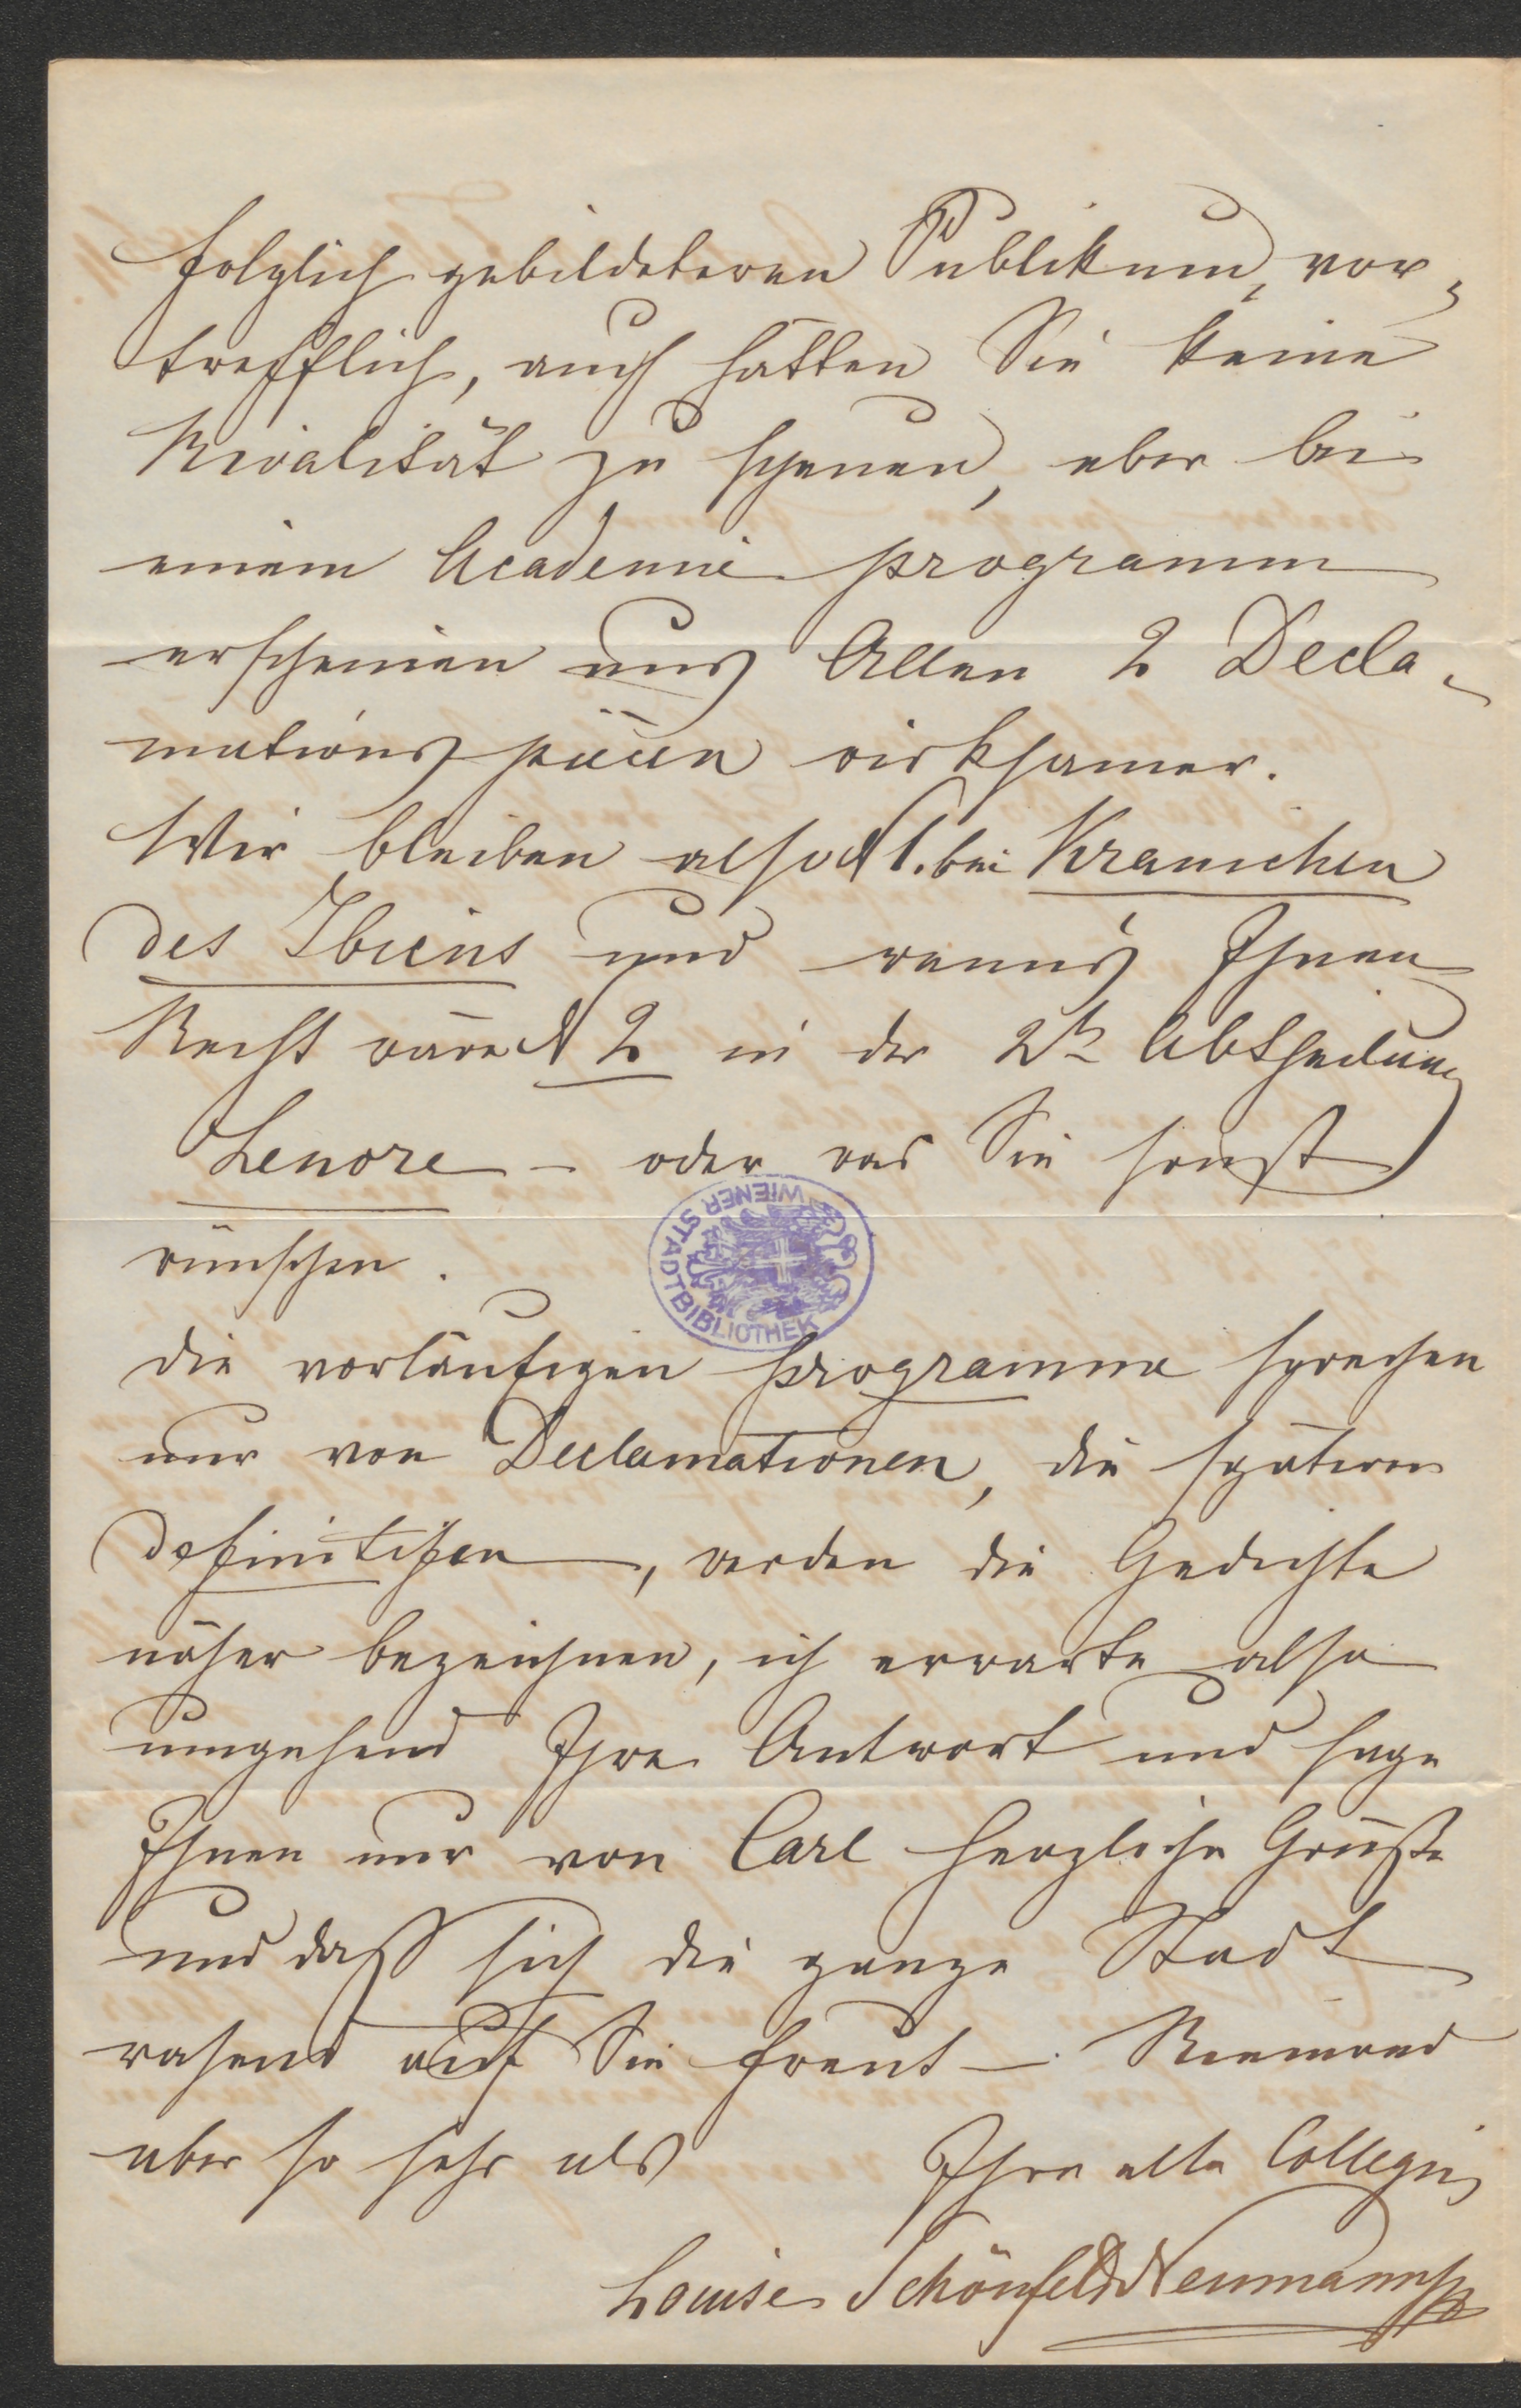 folglich gebildeteren Publikum, vor-
trefflich, auch hätten Sie keine
Rivalität zu scheuen, aber bei
einem Academie programm
erscheinen uns Allen 2 Decla-
mations piècen wirksamer.
Wir bleiben also N 1. bei Kranichen
des Ibicus und wenns Ihnen
Recht wäre N 2 in der 2t Abtheilung
Lenore – oder was Sie sonst
wünschen.
WIENER STADTBIBLIOTHEK
die vorläufigen programme sprechen
nur von Declamationen, die späteren
definitifen, werden die Gedichte
näher bezeichnen, ich erwarte also
umgehend Ihre Antwort und sage
Ihnen nur von Carl herzliche Grüße
und daß sich die ganze Stadt
rasend auf Sie freut – Niemand
aber so sehr als Ihre alte Collegin
Louise Schönfeld Neumann